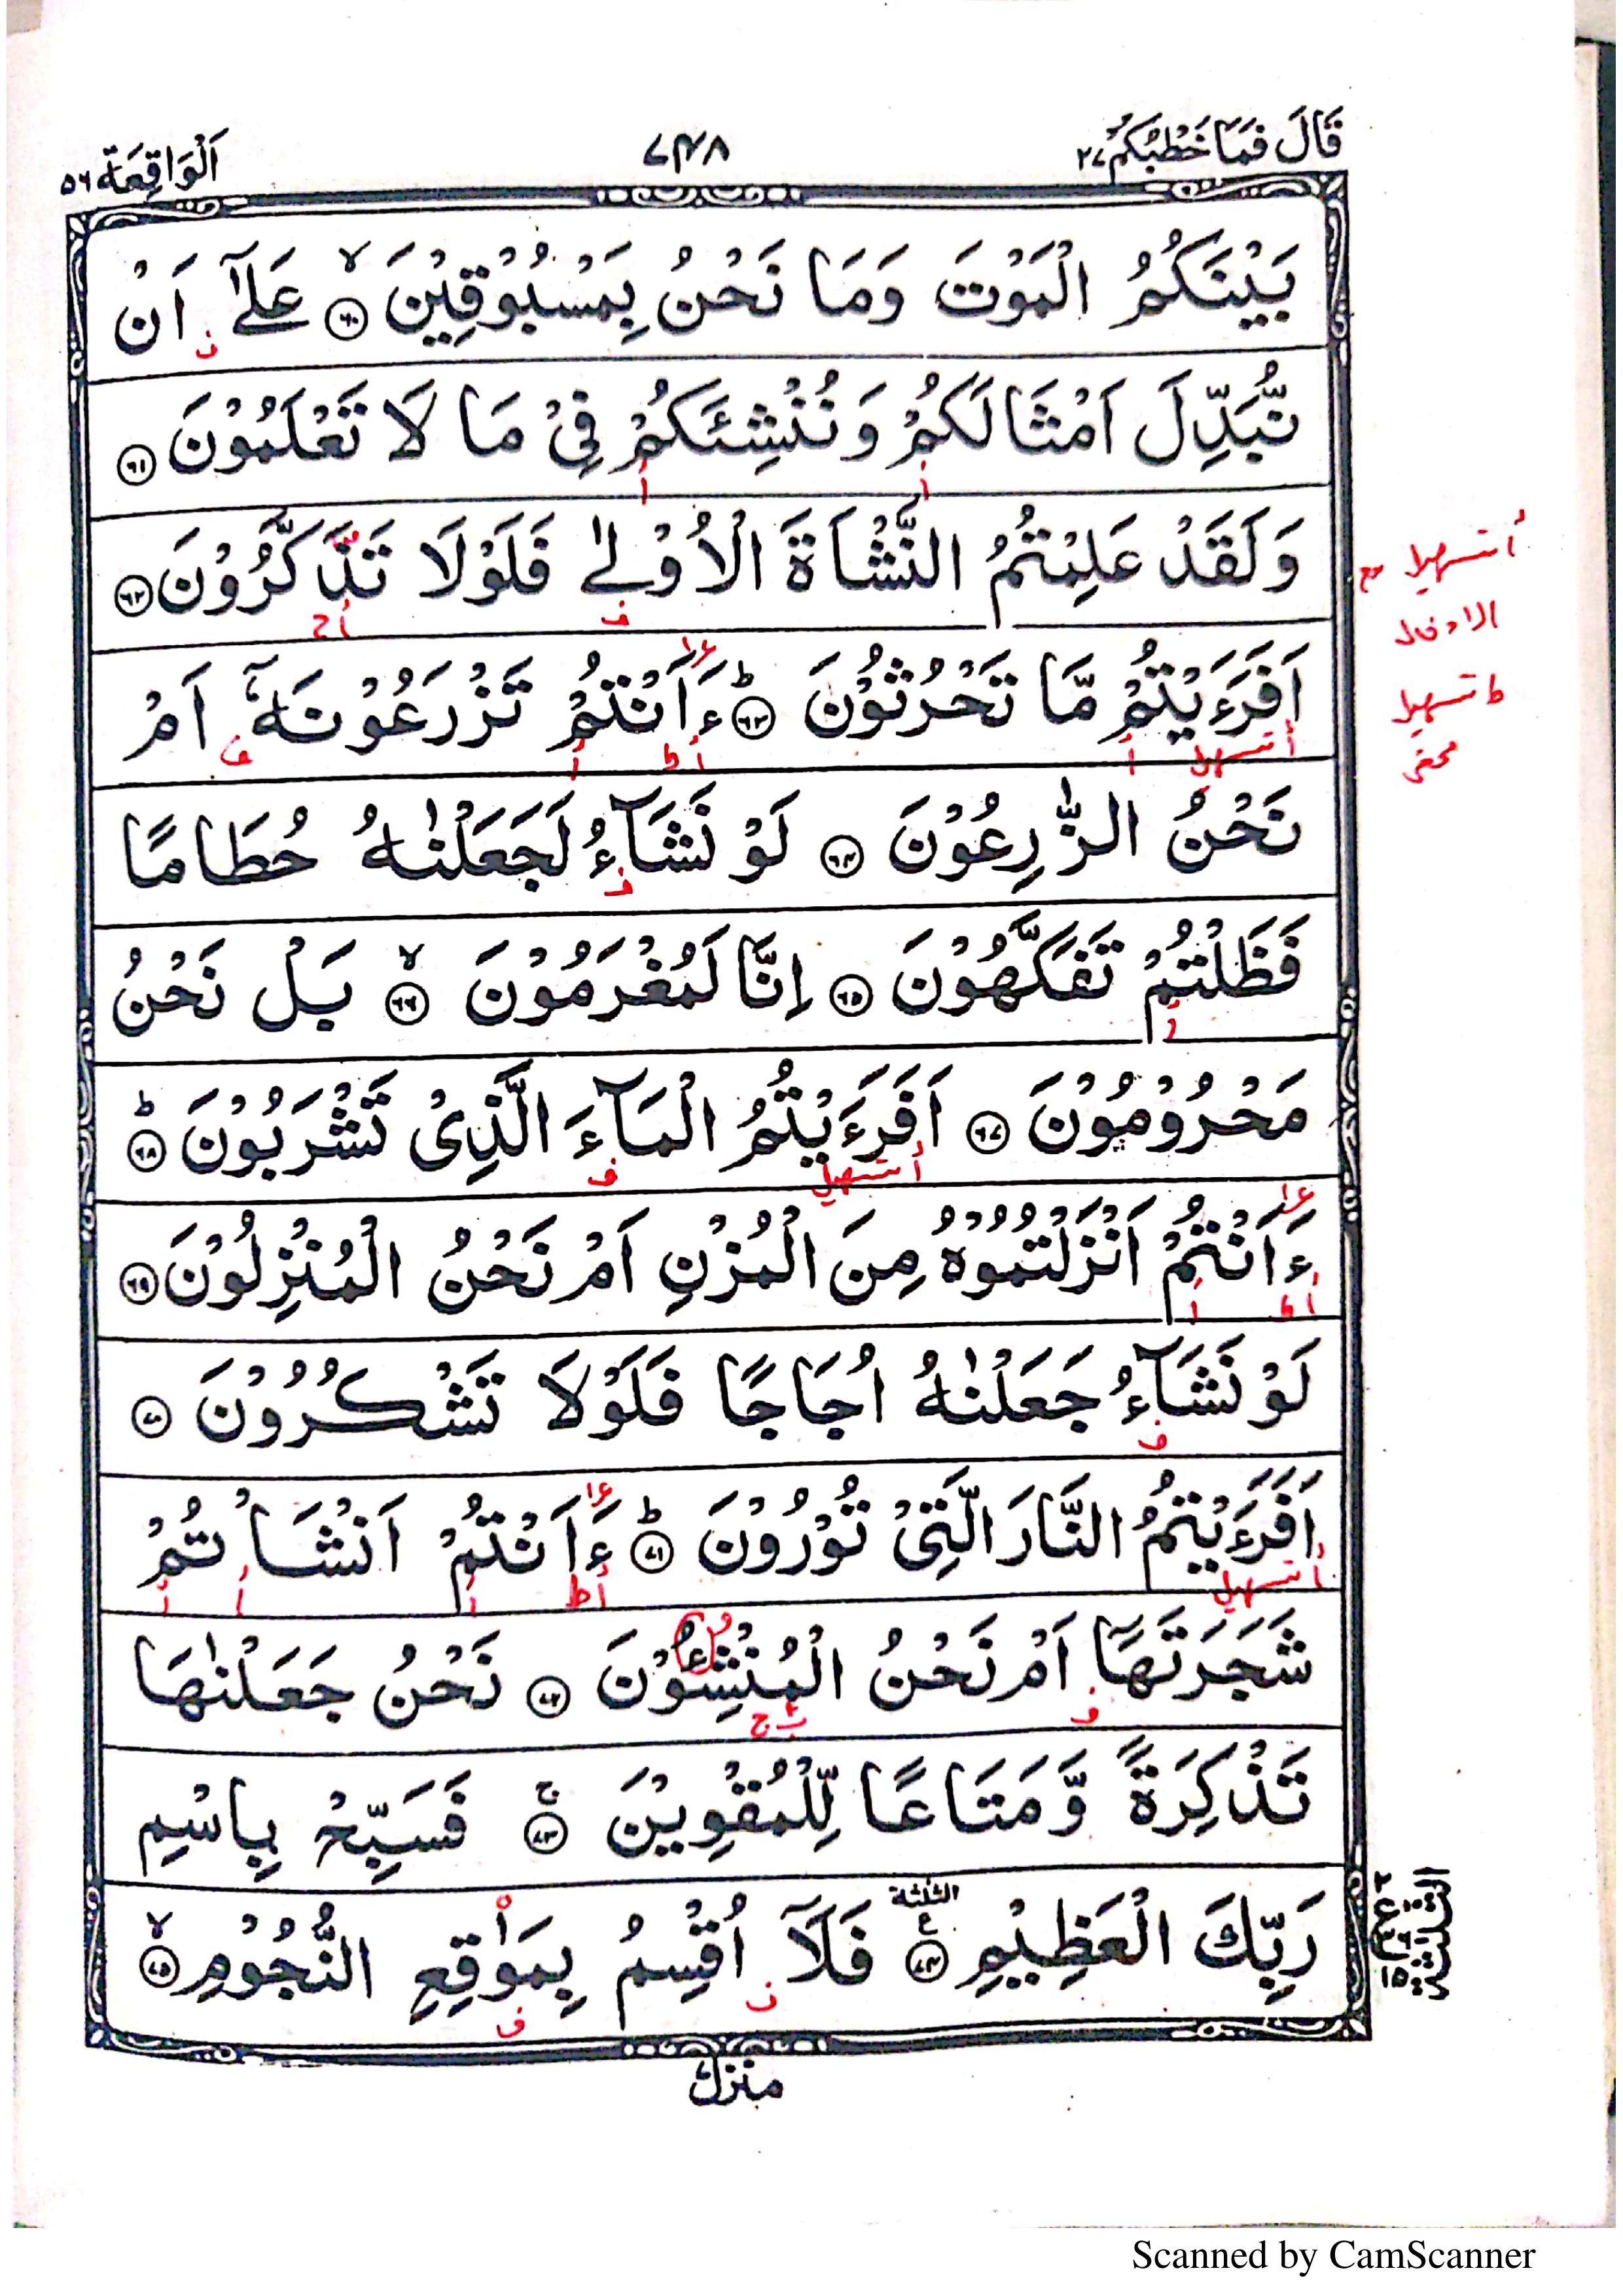 قَالَ فَمَا خَطْبُكُمْ ٢٧
٧٤٨
اَلْوَاقِعَة ٥٦
بَيْنَكُمُ الْمَوْتَ وَمَا نَحْنُ بِمَسْبُوْقِيْنَ ۙ ٦٠ عَلٰٓى اَنْ
نُّبَدِّلَ اَمْثَالَكُمْ وَنُنْشِئَكُمْ فِيْ مَا لَا تَعْلَمُوْنَ ٦١
وَلَقَدْ عَلِمْتُمُ النَّشْاَةَ الْاُوْلٰى فَلَوْلَا تَذَكَّرُوْنَ ٦٢
اَفَرَءَيْتُمْ مَّا تَحْرُثُوْنَ ؕ ٦٣ ءَاَنْتُمْ تَزْرَعُوْنَهٗٓ اَمْ
نَحْنُ الزّٰرِعُوْنَ ٦٤ لَوْ نَشَآءُ لَجَعَلْنٰهُ حُطَامًا
فَظَلْتُمْ تَفَكَّهُوْنَ ٦٥ اِنَّا لَمُغْرَمُوْنَ ۙ ٦٦ بَلْ نَحْنُ
مَحْرُوْمُوْنَ ٦٧ اَفَرَءَيْتُمُ الْمَآءَ الَّذِيْ تَشْرَبُوْنَ ؕ ٦٨
ءَاَنْتُمْ اَنْزَلْتُمُوْهُ مِنَ الْمُزْنِ اَمْ نَحْنُ الْمُنْزِلُوْنَ ٦٩
لَوْ نَشَآءُ جَعَلْنٰهُ اُجَاجًا فَلَوْلَا تَشْكُرُوْنَ ٧٠
اَفَرَءَيْتُمُ النَّارَ الَّتِيْ تُوْرُوْنَ ؕ ٧١ ءَاَنْتُمْ اَنْشَاْتُمْ
شَجَرَتَهَآ اَمْ نَحْنُ الْمُنْشِئُوْنَ ٧٢ نَحْنُ جَعَلْنٰهَا
تَذْكِرَةً وَّمَتَاعًا لِّلْمُقْوِيْنَ ۚ ٧٣ فَسَبِّحْ بِاسْمِ
رَبِّكَ الْعَظِيْمِ ٧٤ الثلثة ع فَلَآ اُقْسِمُ بِمَوٰقِعِ النُّجُوْمِ ۙ ٧٥
أ تسهيل مع
الادخال
ط تسهيل
محض
منزل
Scanned by CamScanner